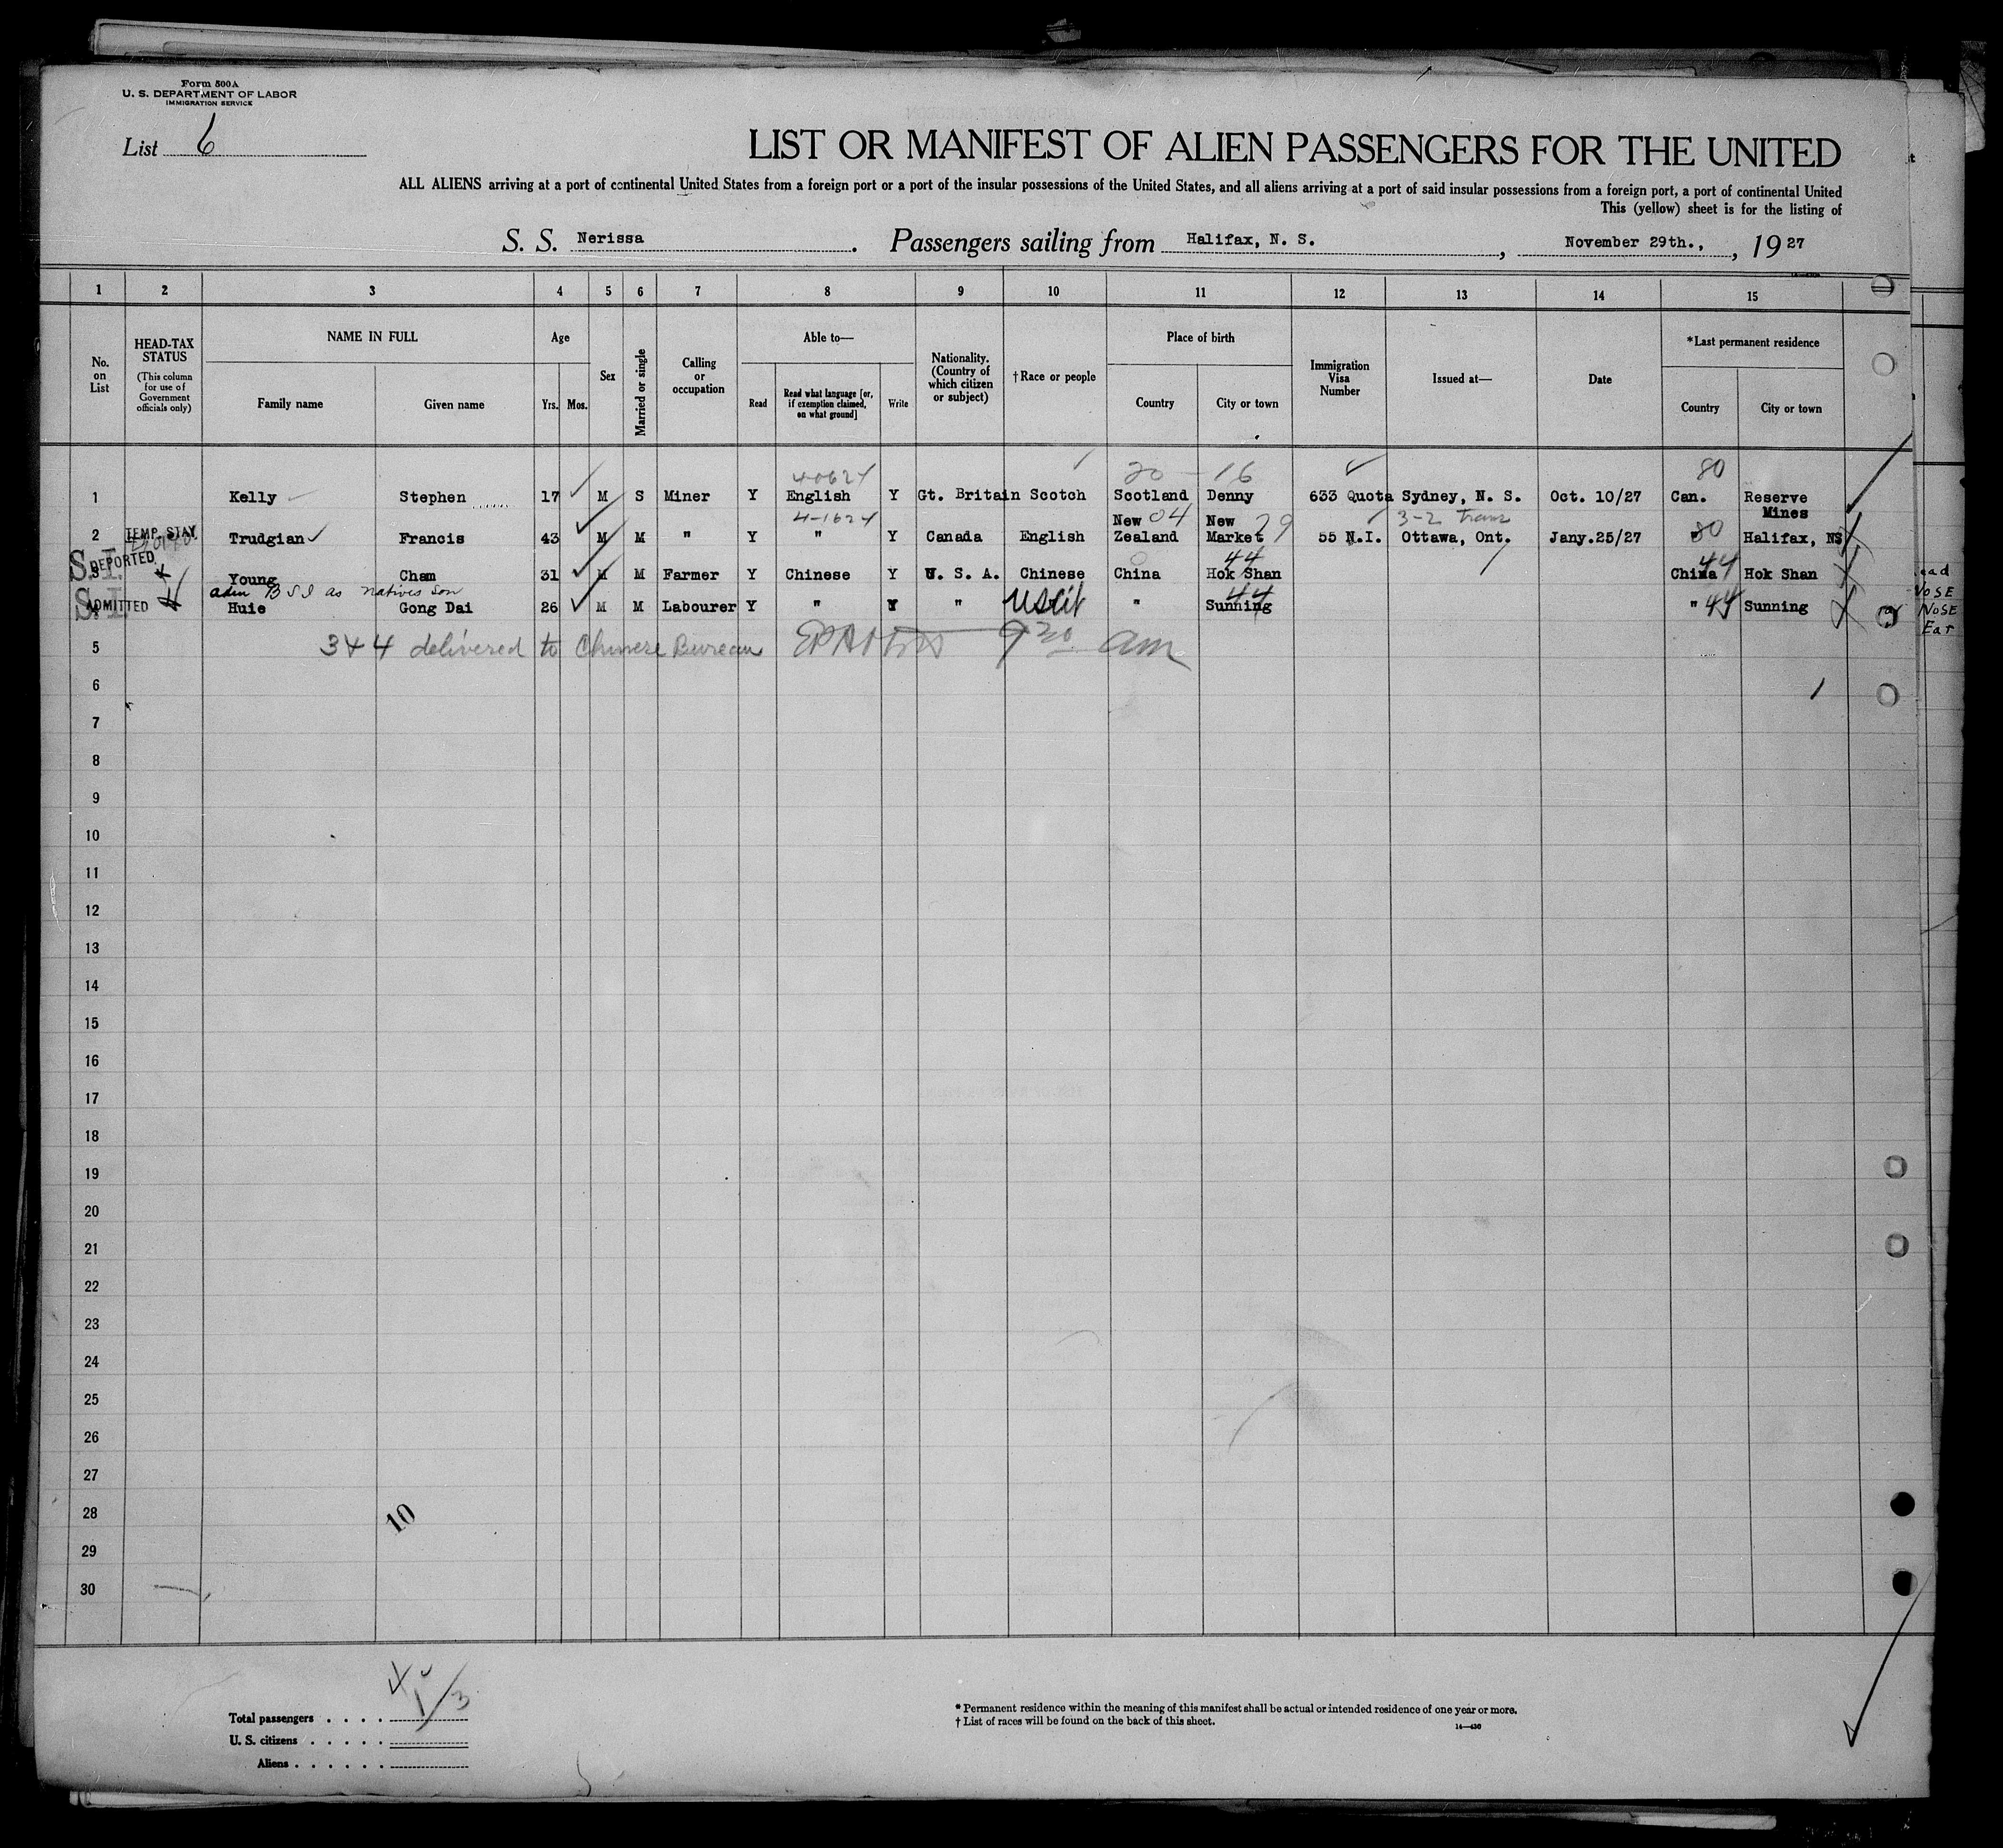 Form 500A
U. S. DEPARTMENT OF LABOR
IMMIGRATION SERVICE
List 6
LIST OR MANIFEST OF ALIEN PASSENGERS FOR THE UNITED
ALL ALIENS arriving at a port of continental United States from a foreign port or a port of the insular possessions of the United States, and all aliens arriving at a port of said insular possessions from a foreign port, a port of continental United
This (yellow) sheet is for the listing of
S. S. Nerissa . Passengers sailing from Halifax, N. S. , November 29th., , 19 27
1 2 3 4 5 6 7 8 9 10 11 12 13 14 15
No. on List
HEAD-TAX STATUS (This column for use of Government officials only)
NAME IN FULL
Family name
Given name
Age
Yrs. Mos.
Sex
Married or single
Calling or occupation
Able to—
Read
Read what language [or, if exemption claimed, on what ground]
Write
Nationality. (Country of which citizen or subject)
†Race or people
Place of birth
Country
City or town
Immigration Visa Number
Issued at—
Date
*Last permanent residence
Country
City or town
40624 20 - 16 80
1 Kelly Stephen 17 M S Miner Y English Y Gt. Britain Scotch Scotland Denny 633 Quota Sydney, N. S. Oct. 10/27 Can. Reserve Mines
4-1624 04 29 3-2 Trans
2 TEMP. STAY Trudgian Francis 43 M M " Y " Y Canada English New Zealand New Market 55 N.I. Ottawa, Ont. Jany.25/27 " 80 Halifax, NS
S.I. DEPORTED 44 44
3 Young Cham 31 M M Farmer Y Chinese Y U. S. A. Chinese China Hok Shan China Hok Shan
adm B S I as natives son
S.I. ADMITTED Huie Gong Dai 26 M M Labourer Y " Y " US Cit " Sunning 44 " 44 Sunning
5 3 & 4 delivered to Chinese Bureau 9 30 am
6
7
8
9
10
11
12
13
14
15
16
17
18
19
20
21
22
23
24
25
26
27
28
29
30
10
Total passengers . . . .
U. S. citizens . . . . .
Aliens . . . . . .
1/3
* Permanent residence within the meaning of this manifest shall be actual or intended residence of one year or more.
† List of races will be found on the back of this sheet.
14—430
Nose
Ear